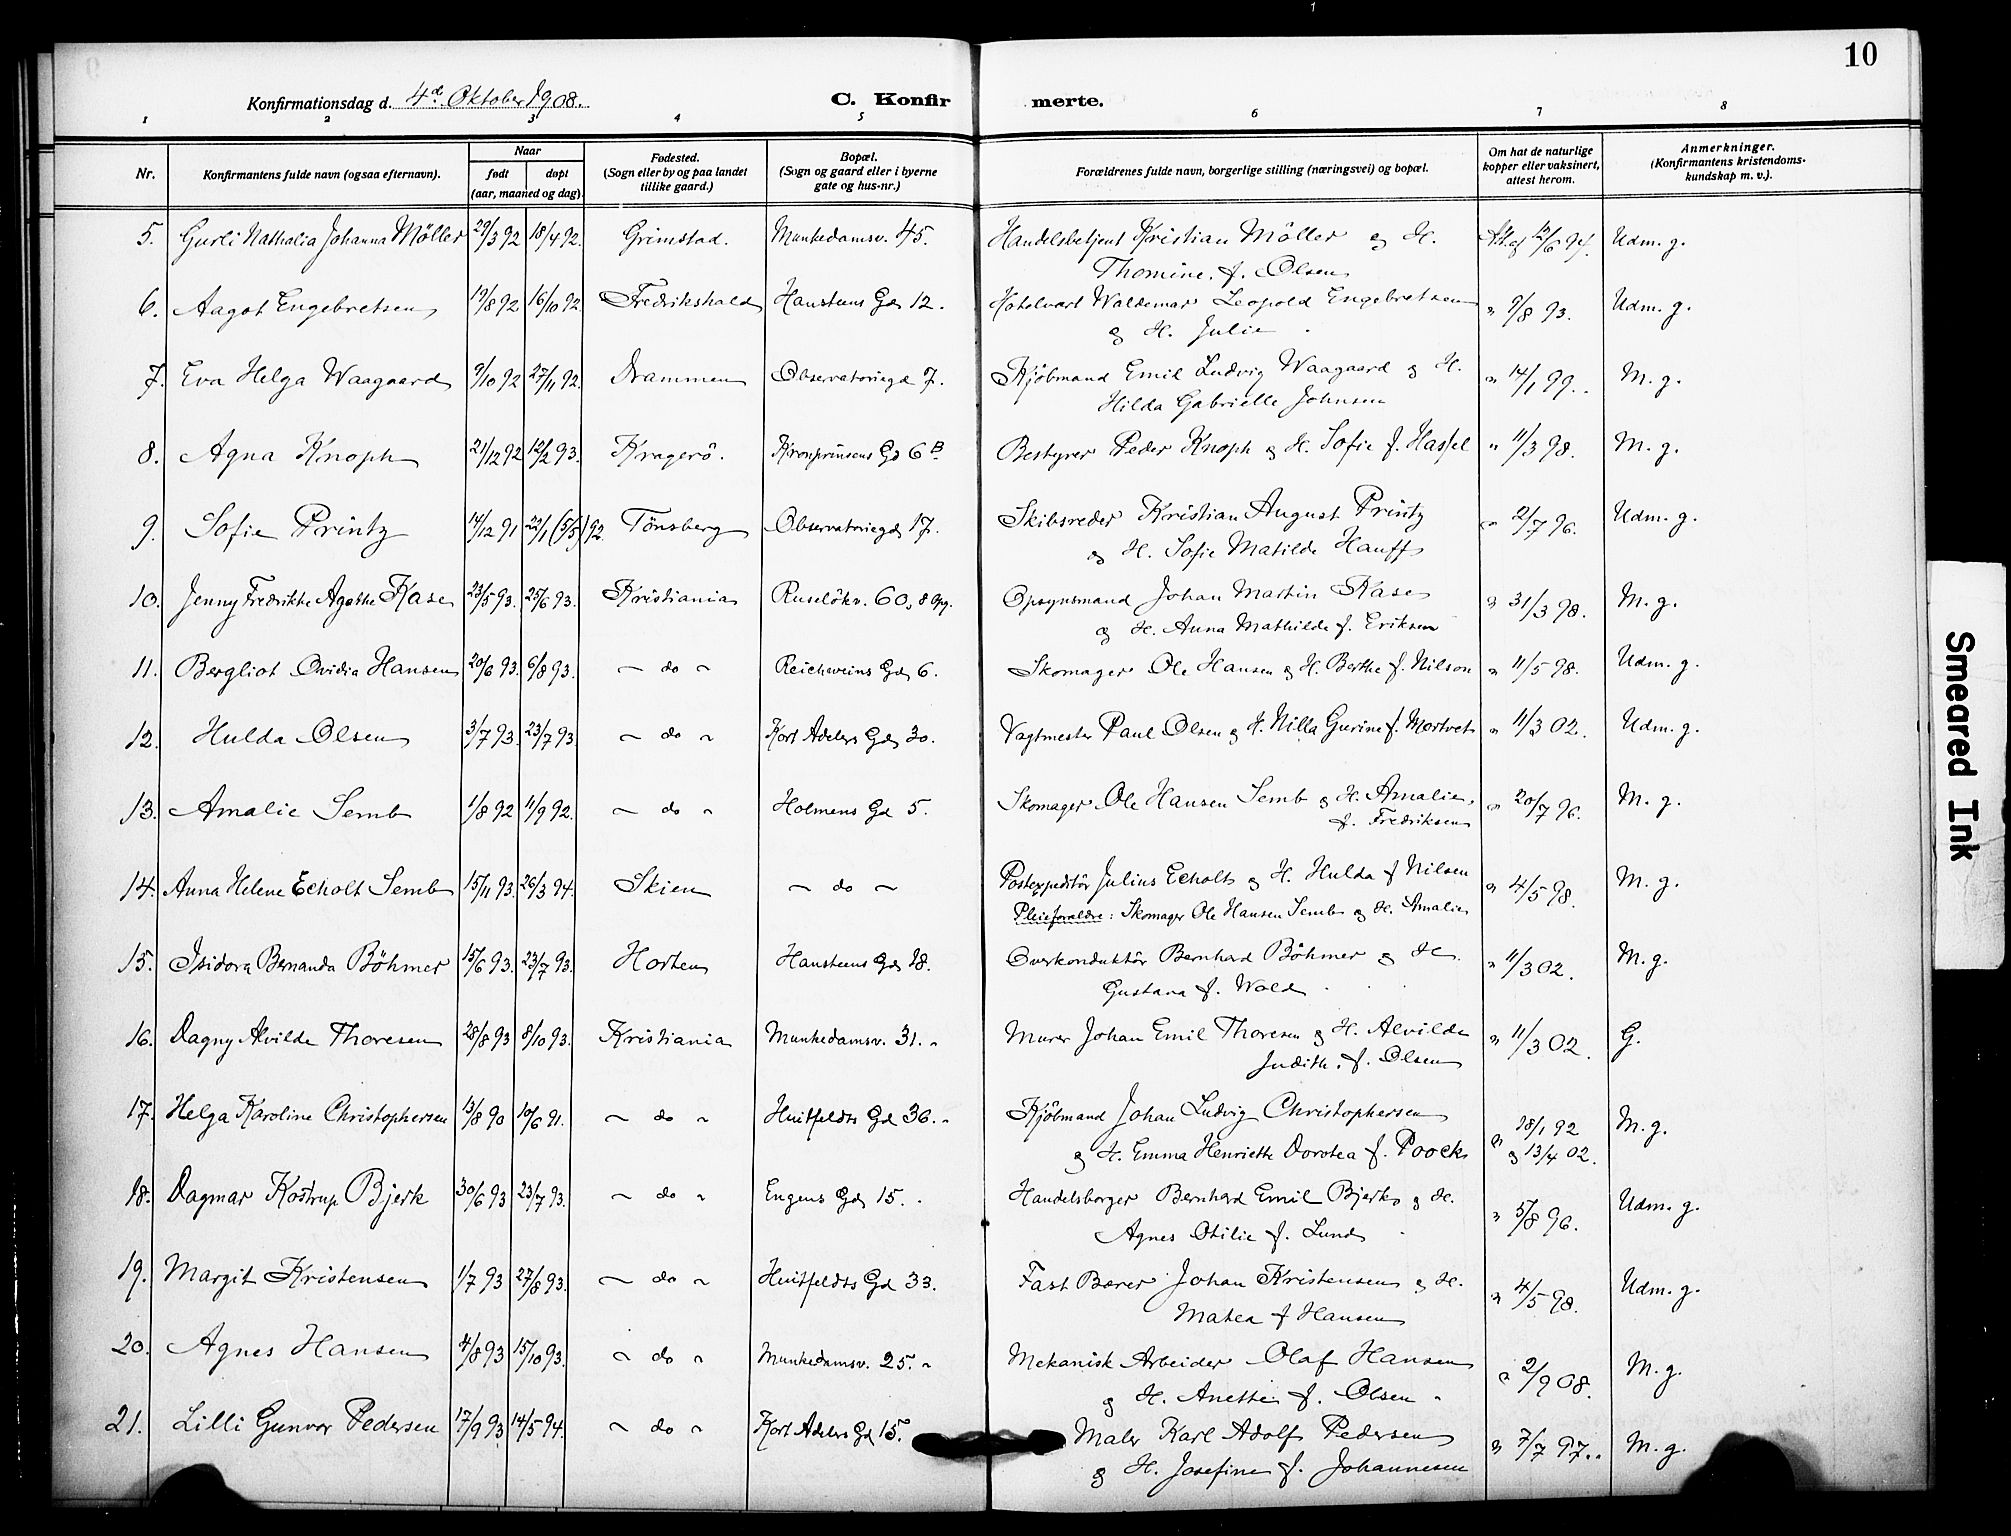 10
Konfirmationsdag d. 4d Oktober 1908.
C. Konfir merte.
1 2 3 4 5 6 7 8
Nr. Konfirmantens fulde navn (ogsaa efternavn). Naar født døpt (aar, maaned og dag). Fødested. (Sogn eller by og paa landet tillike gaard.) Bopæl. (Sogn og gaard eller i byerne gate og hus-nr.) Forældrenes fulde navn, borgerlige stilling (næringsvei) og bopæl. Om hat de naturlige kopper eller vaksinert, attest herom. Anmerkninger. (Konfirmantens kristendomskundskap m. v.).
5. Gurli Nathalia Johanna Möller 29/3 92 18/4 92. Grimstad. Munkedamsv. 45. Handelsbetjent Kristian Möller og H. 94. Udm. g.
Thomine, f. Olsen
6. Aagot Engebretsen 19/8 92 16/10 92. Fredrikshald Hansteens Gd 12. Hotelvært Waldemar Leopold Engebretsen " 9/8 93. Udm. g.
og H. Julie
7. Eva Helga Waagaard 9/10 92 27/11 92. Drammen Observatoriegd 7. Kjöbmand Emil Ludvig Waagaard og H. " 14/1 99. M. g.
Hilda Gabrielle Johnsen
8. Agna Knoph 21/12 92 12/2 93. Kragerö. Kronprinsens Gd 6 B. Bestyrer Peder Knoph og H. Sofie f. Hassel " 11/3 98. M. g.
9. Sofie Printz 14/12 91 22/1 (5/5) 92. Tönsberg Observatoriegd 17. Skibsreder Kristian August Printz " 2/7 96. Udm. g.
og H. Sofie Matilde Hauff
10. Jenny Fredrikke Agathe Kase 23/5 93. 25/6 93. Kristiania Ruselökv. 60, 8 Opg. Opsynsmand Johan Martin Kase " 31/3 98. M. g.
og H. Anna Mathilde f. Eriksen
11. Bergliot Ovidia Hansen 20/6 93. 6/8 93. - do - Reichweins Gd 6. Skomager Ole Hansen og H. Berthe f. Nilson " 11/5 98. Udm. g.
12. Hulda Olsen 3/7 93. 23/7 93. - do - Kort Adelers Gd 30. Vagtmester Paul Olsen og H. Nilla Gurine f. Mortvet " 11/3 02. Udm. g.
13. Amalie Semb 1/8 92 11/9 92. - do - Holmens Gd 5. Skomager Ole Hansen Semb og H. Amalie, " 20/7 96. M. g.
f. Fredriksen
14. Anna Helene Echolt Semb 15/11 93. 26/3 94. Skien - do - Postexpeditör Julius Echolt og H. Hulda f Nilsen " 4/5 98. M. g.
Pleieforældre: Skomager Ole Hansen Semb og H. Amalie
15. Isidora Bernanda Böhmer 15/6 93. 23/7 93. Horten Hansteens Gd 18. Overkonduktör Bernhard Böhmer og H. " 11/3 02. M. g.
Gustava f. Wold
16. Dagny Alvilde Thoresen 28/8 93 8/10 93. Kristiania Munkedamsv. 31. - Murer Johan Emil Thoresen og H. Alvilde " 11/3 02. G.
Judith, f. Olsen
17. Helga Karoline Christophersen 13/8 90 10/6 91. - do - Huitfeldts Gd 36. - Kjöbmand Johan Ludvig Christophersen " 18/1 92 M. g.
og H. Emma Henriette Dorotea f. Poock og 13/4 02.
18. Dagmar Kostrup Bjerk 30/6 93 23/7 93. - do - Engens Gd 15. Handelsborger Bernhard Emil Bjerk og H. " 5/8 96. Udm. g.
Agnes Otilie f. Lund
19. Margit Kristensen 1/7 93 27/8 93. - do - Huitfeldts Gd 33. Fast Bærer Johan Kristensen og H. " 4/5 98. Udm. g.
Matea f Hansen
20. Agnes Hansen 4/8 93 15/10 93. - do - Munkedamsv. 25. - Mekanisk Arbeider Olaf Hansen " 2/9 08. M. g.
og H. Anette f. Olsen
21. Lilli Gunvor Pedersen 17/9 93 14/5 94. - do - Kort Adelers Gd 15. Maler Karl Adolf Pedersen " 7/7 97. M. g.
og H. Josefine f. Johannesen
Smeared Ink